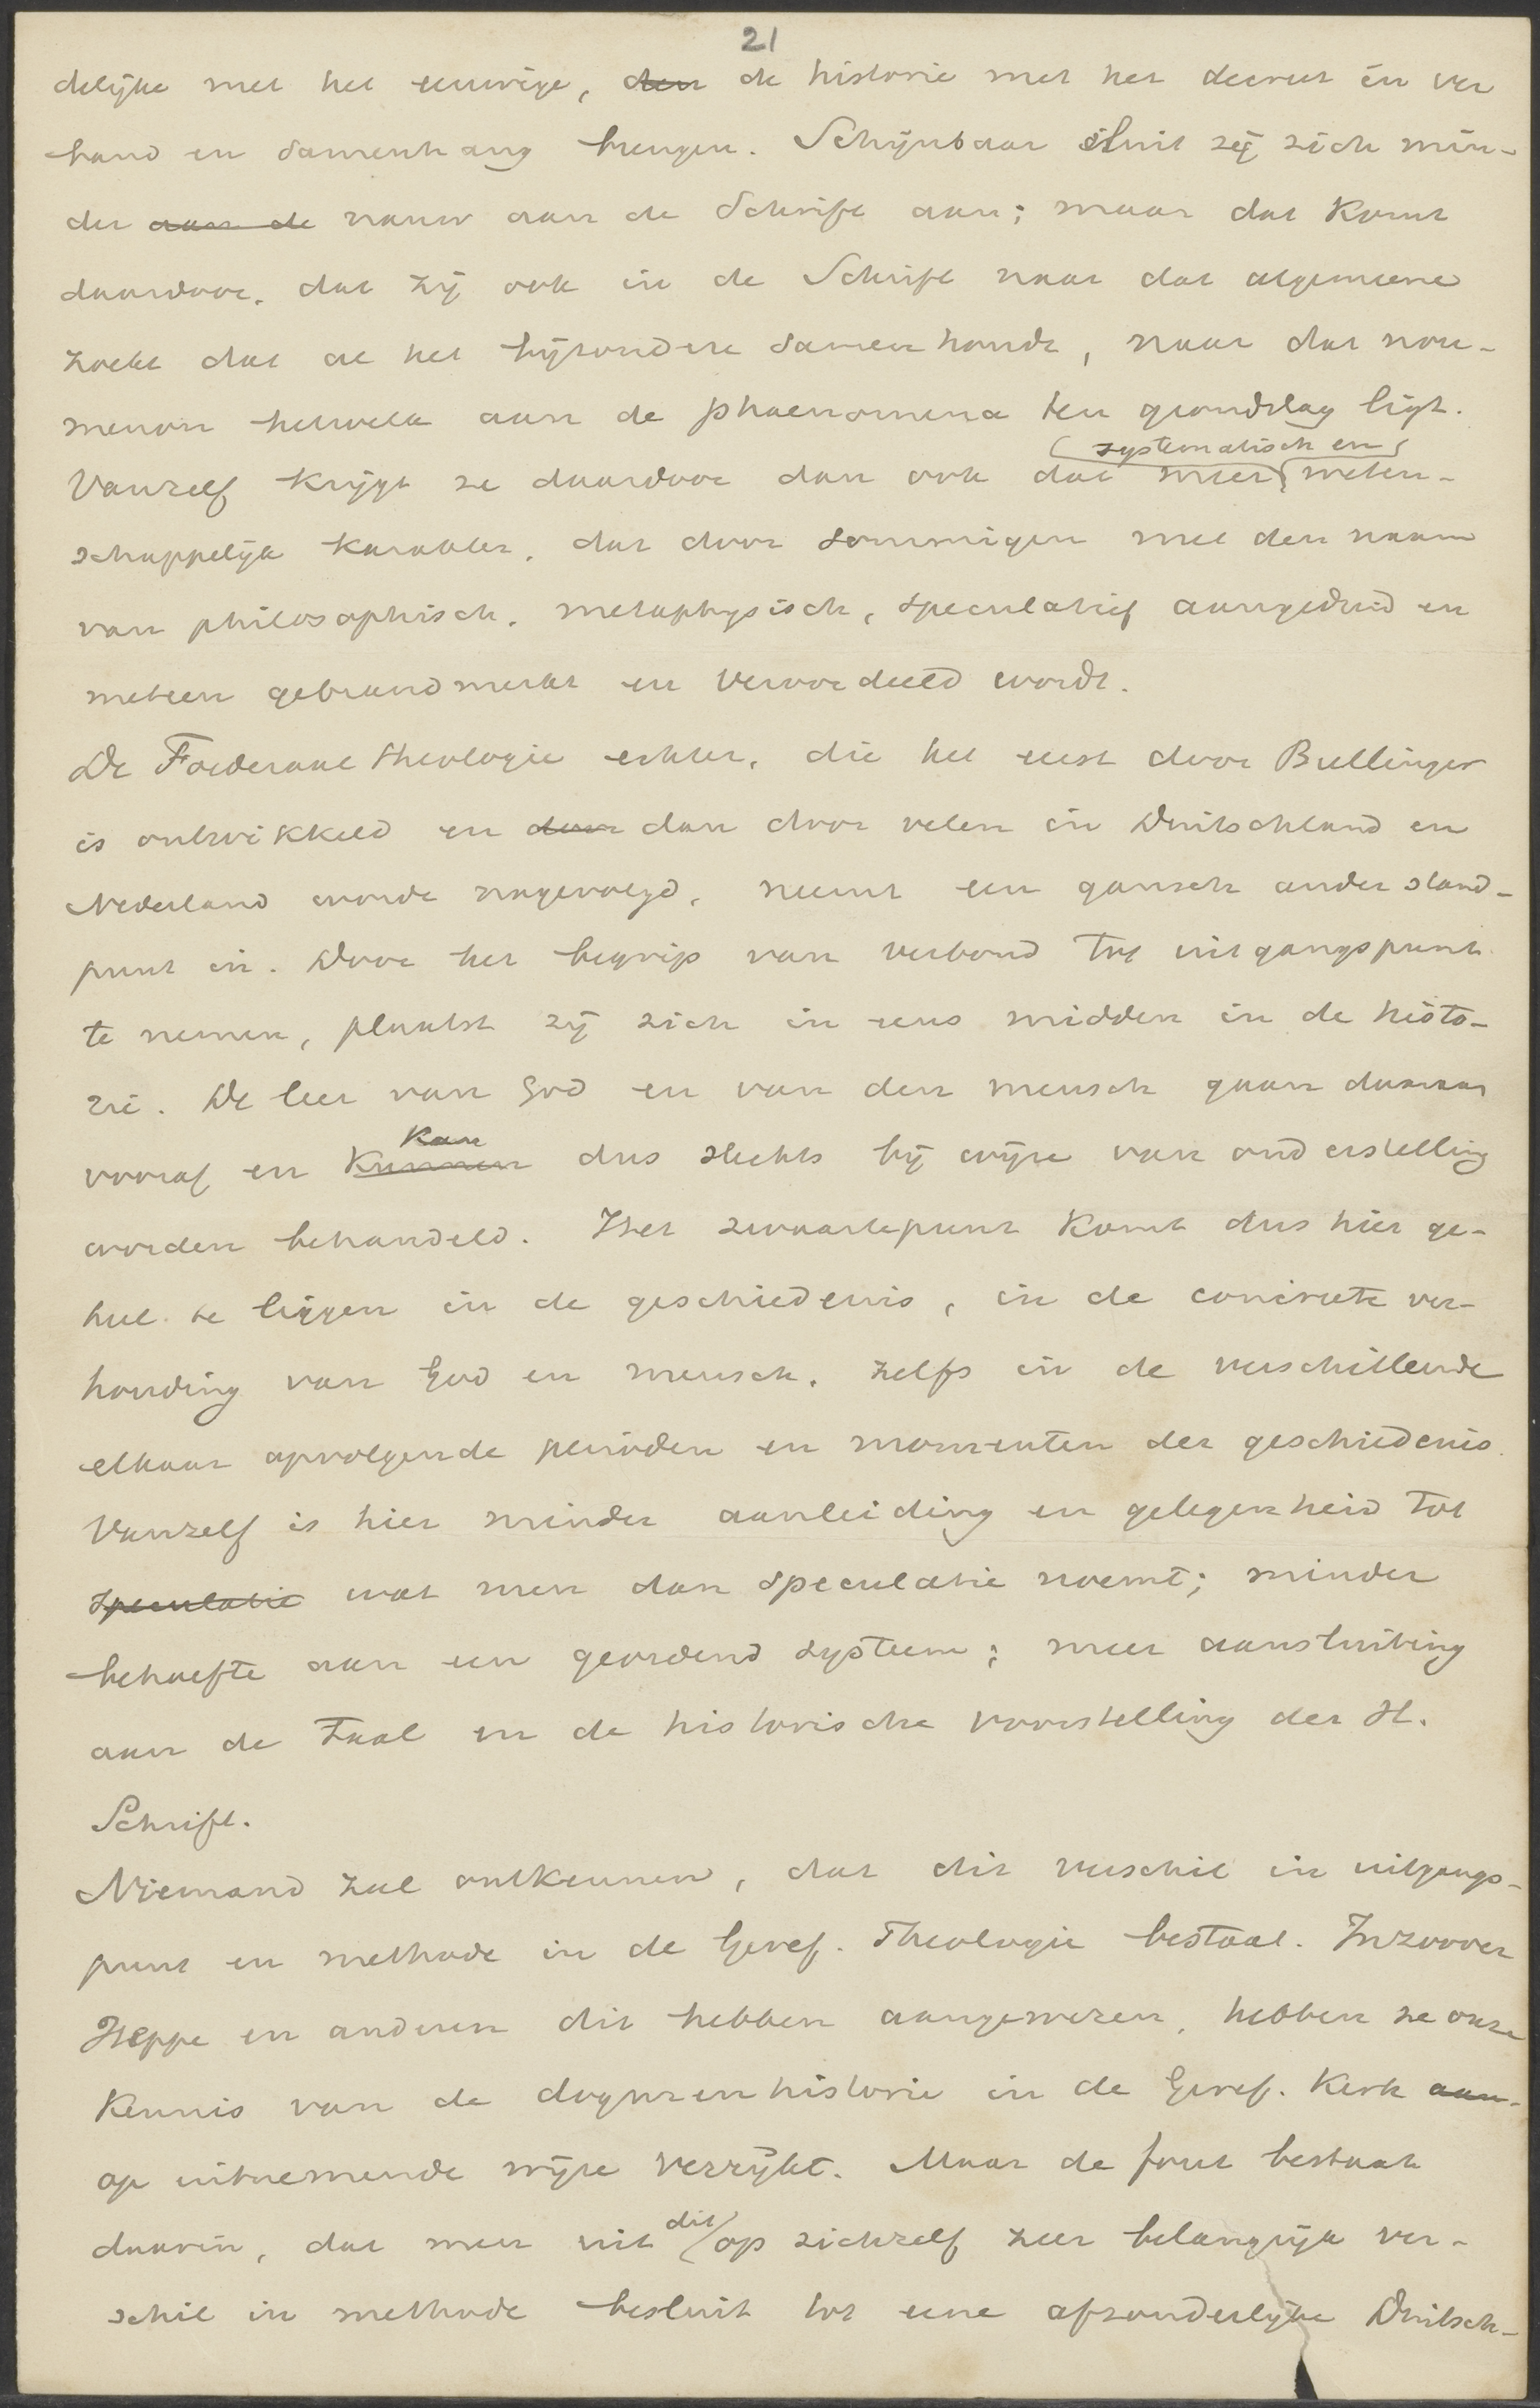 21
delijke met het eeuwige, den de historie met het decreet in ver
band en samenhang brengen. Schijnbaar sluit zij zich min-
der aan de nauw aan de Schrift aan; maar dat komt
daardoor, dat zij ook in de Schrift naar dat algemeene
zoekt dat al het bijzondere samenhoudt, naar dat nou-
menon hetwelk aan de phaenomena ten grondslag ligt.
systematisch en
Vanzelf krijgt ze daardoor dan ook dat meer weten-
schappelijk karakter, dat door sommigen met den naam
van philosophisch, metaphysisch, speculatief aangeduid en
meteen gebrandmerkt en veroordeeld wordt.
De Foederaal theologie echter, die het eerst door Bullinger
is ontwikkeld en door dan door velen in Duitschland en
Nederland werde nagevolgd, neemt een gansch ander stand-
punt in. Door het begrip van verbond tot uitgangspunt
te nemen, plaatst zij zich in eens midden in de histo-
rie. De leer van God en van den mensch gaan daaraan
kan
vooraf en kunnen dus slechts bij wijze van onderstelling
worden behandeld. Het zwaartepunt komt dus hier ge-
heel te liggen in de geschiedenis, in de concrete ver-
houding van God en mensch, zelfs in de verschillende
elkaar opvolgende perioden en momenten der geschiedenis.
Vanzelf is hier minder aanleiding en gelegenheid tot
speculatie wat men dan speculatie noemt; minder
behoefte aan een geordend systeem; meer aansluiting
aan de taal en de historische voorstelling der H.
Schrift.
Niemand zal ontkennen, dat dit verschil in uitgangs-
punt en methode in de Geref. Theologie bestaat. Inzoover
Heppe en anderen dit hebben aangewezen, hebben ze onze
kennis van de dogmenhistorie in de Geref. Kerk aan-
op uitnemende wijze verrijkt. Maar de fout bestaat
dit
daarin, dat men uit op zichzelf zeer belangrijk ver-
schil in methode besluit tot eene afzonderlijke Duitsch-